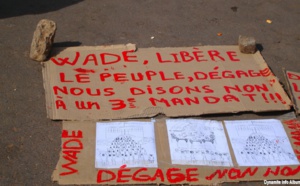 WADE, LIBÈRE
LE PEUPLE, DÉGAGE
NOUS DISONS NON
À UN 3e MANDAT!!!
WADE
DÉGAGE NON NON
Dynamite Info Album